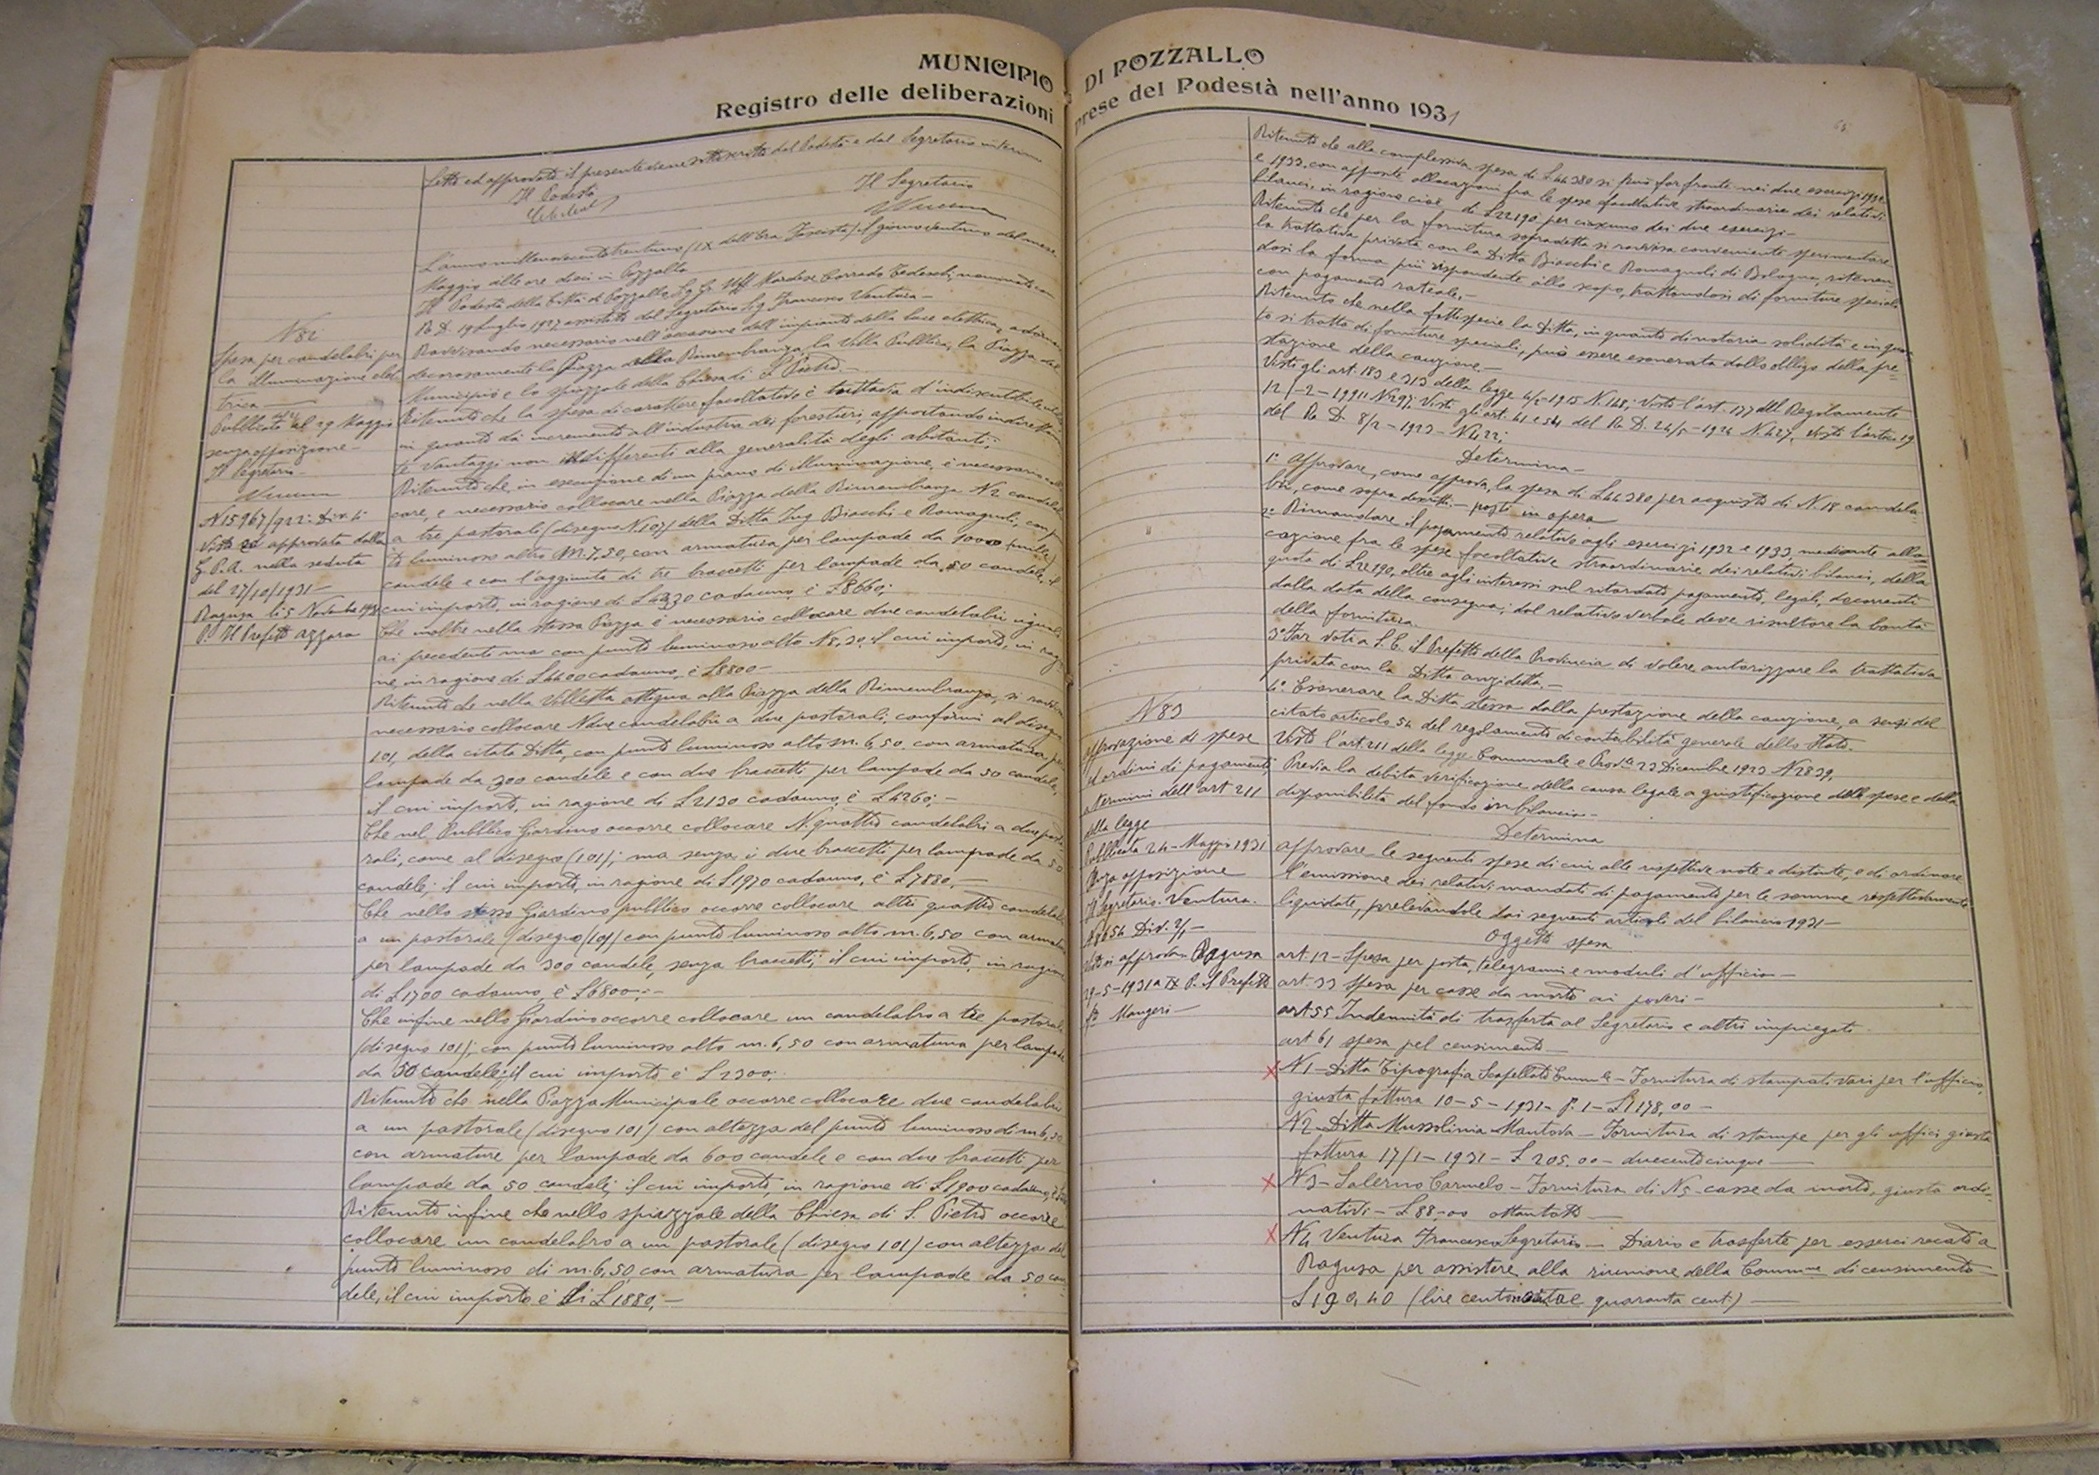 MUNICIPIO DI POZZALLO
Registro delle deliberazioni prese del Podestà nell'anno 1931
Letto ed approvato il presente viene sottoscritto dal Podestà e dal Segretario
Il Podestà
Il Segretario
L'anno millenovecentotrentuno (IX dell'Era Fascista) il giorno ventuno del mese
Maggio alle ore dieci in Pozzallo
Il Podestà della Città di Pozzallo Corrado Tedeschi, nominato con
R. D. 19 luglio 1927 assistito dal Segretario Sig. Francesco Ventura –
Ravvisando necessario nell'occasione dell'impianto della luce elettrica,
decorosamente la Piazza della Rimembranza, la Villa Pubblica, la Piazza del
Municipio e lo spiazzale della Chiesa di S. Pietro –
Ritenuto che la spesa di carattere facoltativo è tuttavia d'indiscutibile
in quanto dà incremento all'industria dei forestieri, apportando
vantaggi non indifferenti alla generalità degli abitanti;
Ritenuto che, in esecuzione di un piano di illuminazione, è necessario
care, e necessario collocare nella Piazza della Rimembranza N. 2
a tre pastorali (disegno N. 107) della Ditta Ing. Biacchi e Romagnoli, con
to luminoso alto M. 7,50, con armatura per lampade da 1000
candele e con l'aggiunta di tre braccetti per lampade da 50 candele, il
cui importo, in ragione di L. 4330 cadauno, è L. 8660;
Che inoltre nella stessa Piazza è necessario collocare due candelabri uguali
ai precedenti ma con punto luminoso alto il cui importo, in
ne, in ragione di L. 4400 cadauno, è L. 8800 –
Ritenuto che nella Villetta attigua alla Piazza della Rimembranza, si
necessario collocare N. due candelabri a due pastorali, conformi al
101, della citata Ditta, con punto luminoso alto m. 6,50, con armatura per
lampade da 300 candele e con due braccetti per lampade da 50 candele,
il cui importo, in ragione di L. 2130 cadauno, è L. 4260; –
Che nel Pubblico Giardino occorre collocare N. quattro candelabri a due
rali, come al disegno (101); ma senza i due braccetti per lampade da 50
candele; il cui importo, in ragione di L. 1970 cadauno, è L. 7880, –
Che nello stesso Giardino pubblico occorre collocare altri quattro
a un pastorale (disegno 101) con punto luminoso alto m. 6,50 con
per lampade da 300 candele, senza braccetti; il cui importo, in ragione
di L. 1700 cadauno, è L. 6800; –
Che infine nello Giardino occorre collocare un candelabro a tre
(disegno 101); con punto luminoso alto m. 6,50 con armatura per
da 50 candele; il cui importo è L. 2300;
Ritenuto che nella Piazza Municipale occorre collocare due candelabri
a un pastorale (disegno 101) con altezza del punto luminoso di
con armature per lampade da 600 candele e con due braccetti per
lampade da 50 candele; il cui importo, in ragione di L. 1900 cadauno,
Ritenuto infine che nello spiazzale della Chiesa di S. Pietro occorre
collocare un candelabro a un pastorale (disegno 101) con altezza del
punto luminoso di m. 6,50 con armatura per lampade da 50 can
dele, il cui importo è di L. 1880, –
N 82
Spesa per candelabri per
la illuminazione elet
trica –
Pubblicata il 24 Maggio
senza opposizione –
Il Segretario
N. 15967/922
approvata dalla
G. P. A. nella seduta
del 27/10/1931 –
Ragusa li 5 Novembre 1931
P. Il Prefetto
Ritenuto che alla complessiva spesa di L. 44380 si può far fronte nei due esercizi 1932
e 1933, con apposite allocazioni fra le spese facoltative straordinarie dei relativi
bilanci, in ragione cioè di L. 22190, per ciascuno dei due esercizi –
Ritenuto che per la fornitura sopradetta si ravvisa conveniente sperimentare
la trattativa privata con la Ditta Biacchi e Romagnoli di Bologna, ritenen
dosi la forma più rispondente allo scopo, trattandosi di forniture speciali
con pagamento rateale, –
Ritenuto che nella fattispecie la Ditta, in quanto di notoria solidità e in quan
to si tratta di forniture speciali, può essere esonerata dallo obbligo della pre
stazione della cauzione, –
Visti gli art. 183 e 313 della legge 4/2 – 1915 N. 148; visto l'art. 177 del Regolamento
12/2 – 1911 N. 297; Visti gli art. 41 e 54 del R. D. N. 827,
del R. D. 8/2 – 1923 – N. 422;
Determina –
1° Approvare, come approva, la spesa di L. 44380 per acquisto di N. 18 candela
bri, come sopra descritti – posti in opera
2° Rimandare il pagamento relativo agli esercizi 1932 e 1933, mediante allo
cazione fra le spese facoltative straordinarie dei relativi bilanci, della
quota di L. 22190, oltre agli interessi sul ritardato pagamento, legali, decorrenti
dalla data della consegna; dal relativo verbale deve risultare la bontà
della fornitura.
3° Far voti a S. E. il Prefetto della Provincia di volere autorizzare la trattativa
privata con la Ditta anzidetta. –
4° Esonerare la Ditta stessa dalla prestazione della cauzione, a sensi del
citato articolo 54 del regolamento di contabilità generale dello Stato.
Visto l'art. 211 della legge Comunale e Prov.le 23 Dicembre 1923 N. 2839,
Previa la debita verificazione della causa legale a giustificazione delle spese e della
disponibilità del fondo in bilancio –
Determina
approvare le seguenti spese di cui alle rispettive note e distinte, e di ordinare
l'emissione dei relativi mandati di pagamento per le somme rispettivamente
liquidate, prelevandole dai seguenti articoli del bilancio 1931 –
Oggetto spesa
art. 12 – Spesa per posta, telegrammi e moduli d'ufficio –
art. 33 spesa per casse da morto ai poveri –
art 55 Indennità di trasferta al Segretario e altri impiegati
art 61 spesa pel censimento –
x N 1 – Ditta Tipografia Scapellato – Fornitura di stampati vari per l'ufficio,
giusta fattura 10 – 5 – 1931 – P. 1 – L. 1178,00 –
N 2 – Ditta Mussolinia Mantova – Fornitura di stampe per gli uffici giusta
fattura 17/1 – 1931 – L. 205.00 – duecentocinque –
x N 3 – Salerno Carmelo – Fornitura di N 5 casse da morto, giusta ordi
nativi – L. 88,00 ottantotto –
x N 4 Ventura Francesco Segretario – Diario e trasferte per essersi recato a
Ragusa per assistere alla riunione della di censimento
L. 190,40 (lire quaranta cent.) –
N 83
Approvazione di spese
ed ordini di pagamenti
a termini dell'art 211
della legge
Pubblicata 24 – Maggio 1931
senza opposizione
Il Segretario: Ventura.
Ragusa
29 – 5 – 1931 a IX P. Il Prefetto
Mangeri –